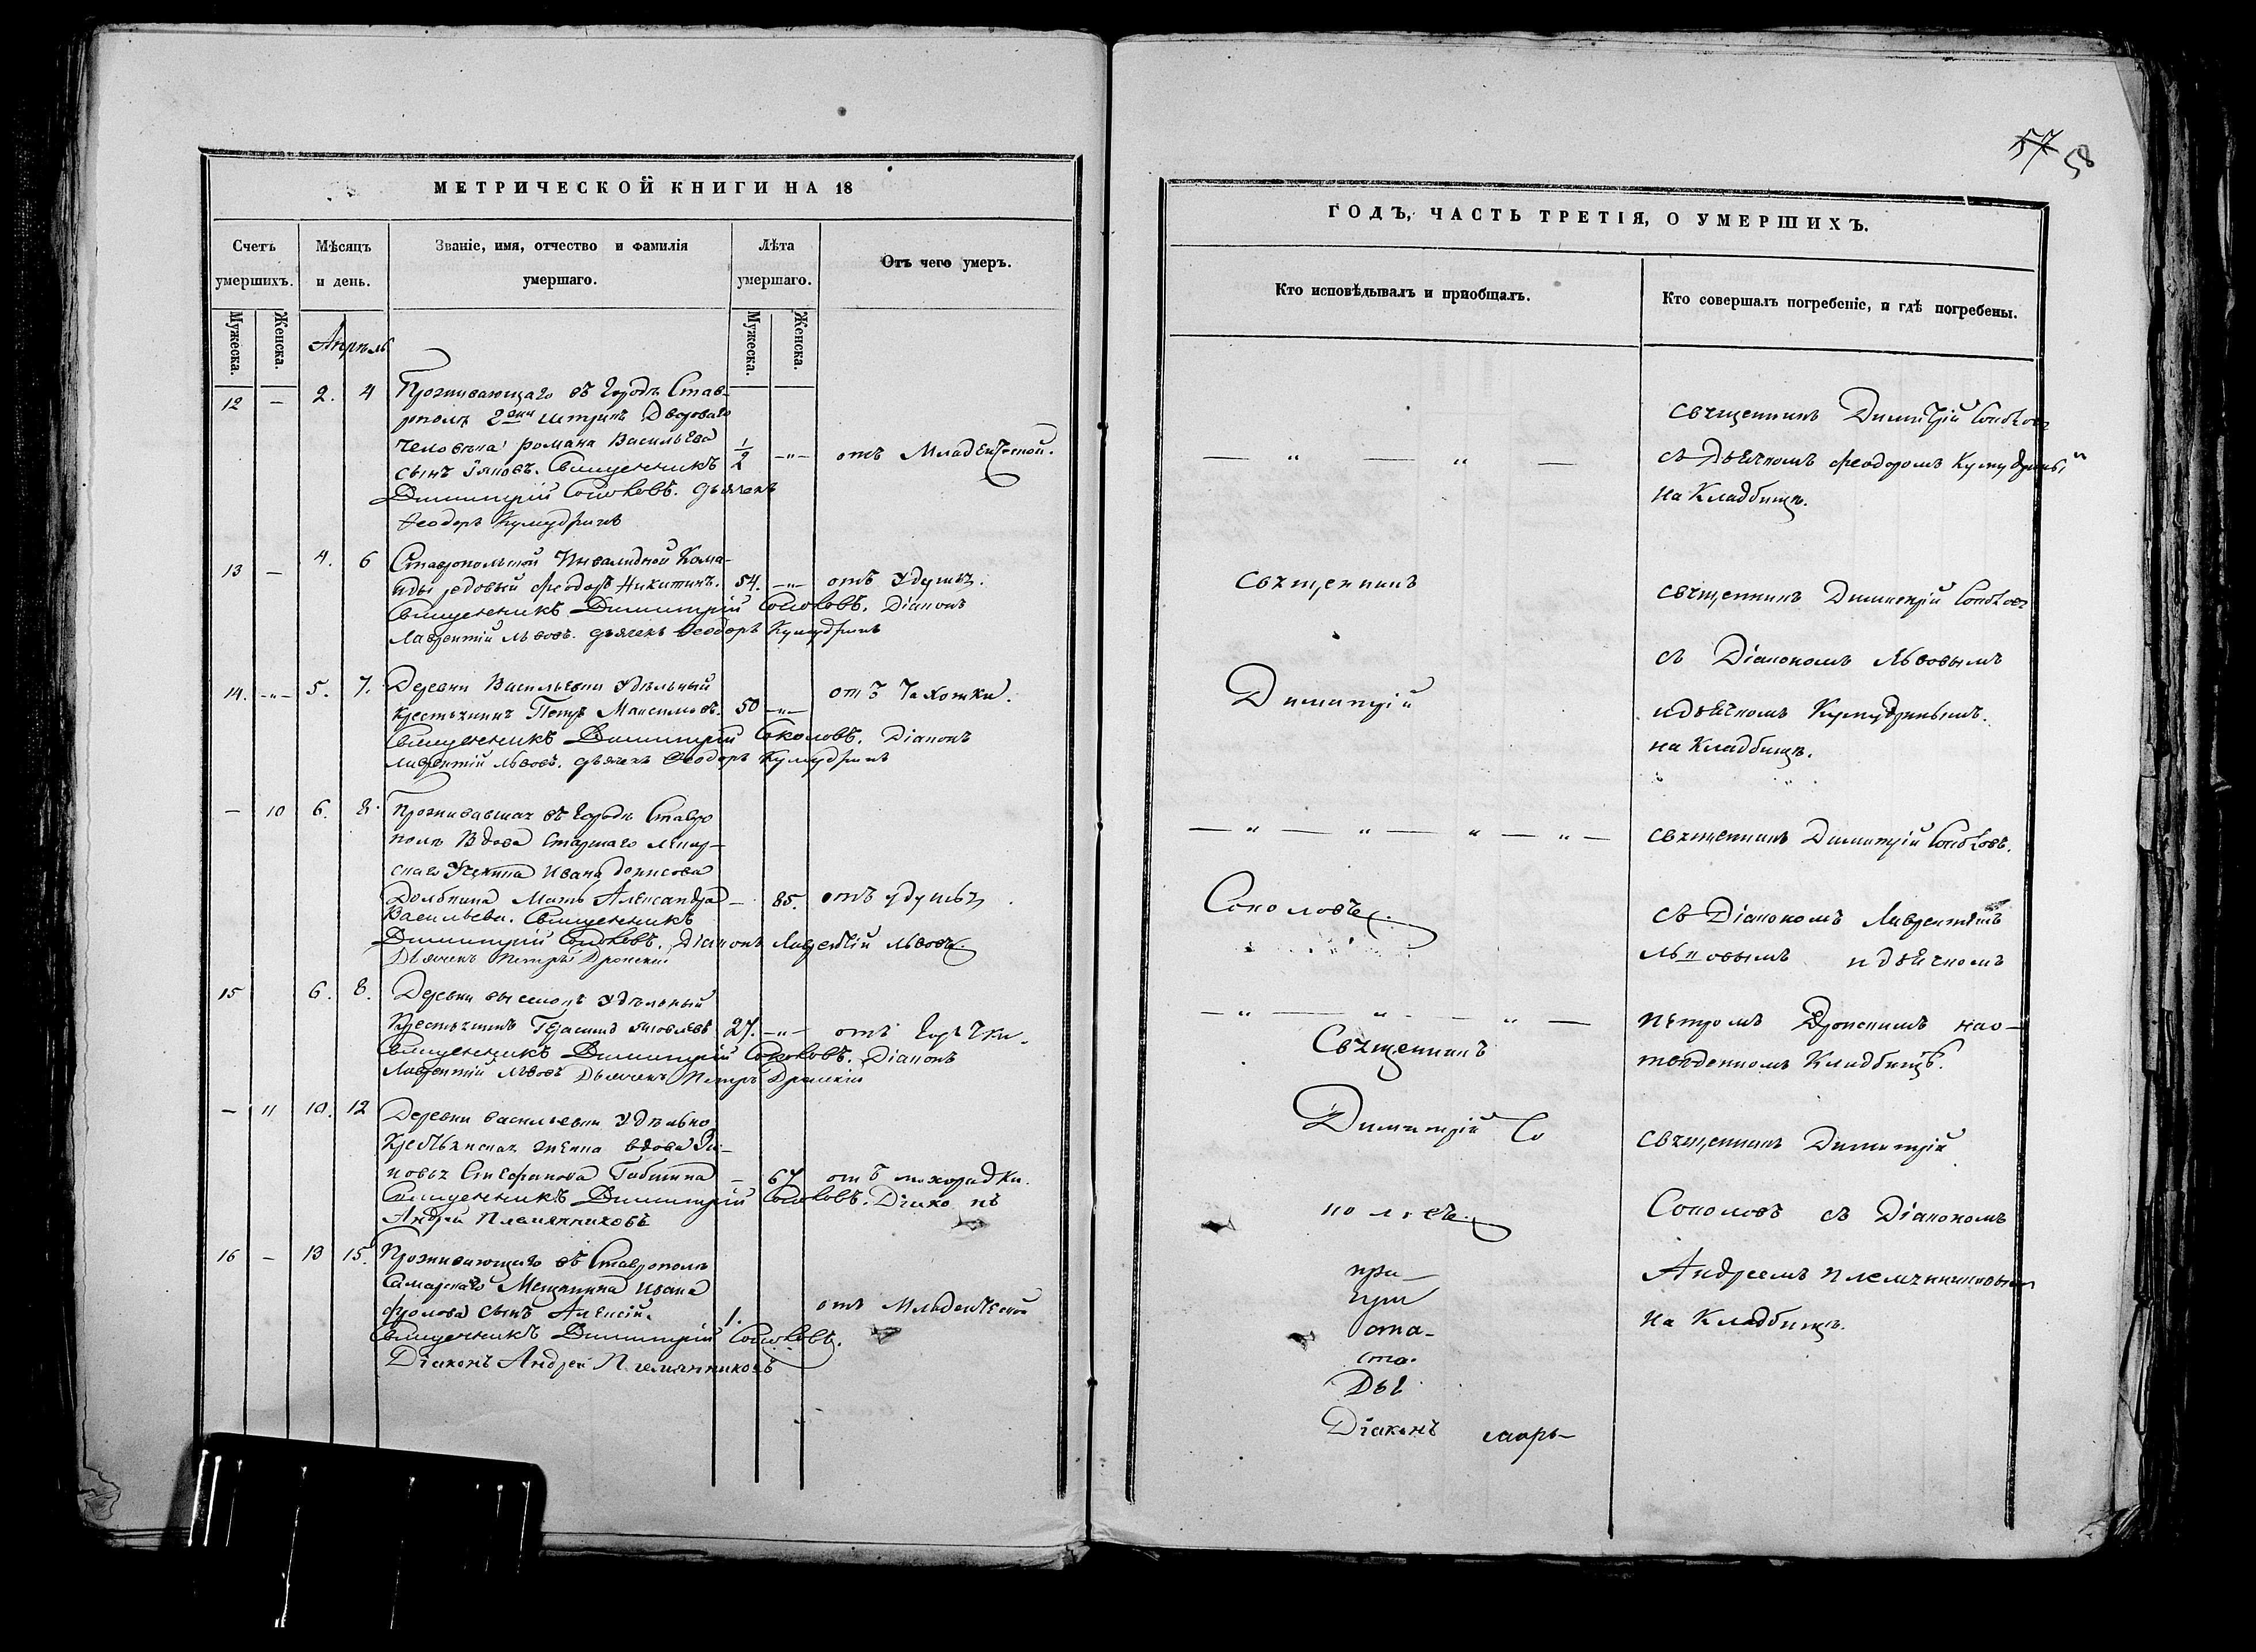 57 58
МЕТРИЧЕСКОЙ КНИГИ НА 18
Счетъ умершихъ.
Мѣсяцъ и день.
Званіе, имя, отчество и фамилія умершаго.
Лѣта умершаго.
Отъ чего умеръ.
Мужеска.
Женска.
Мужеска.
Женска.
Апрѣль
12 — 2. 4 Проживающаго въ городѣ Став-
рополѣ Двороваго
человѣка романа Васильева 1/2 -"- отъ Младенческой.
сынъ Іяковъ. Священникъ
Димитрій Соколовъ. дьячекъ
Ѳеодоръ Кумудринъ
13 — 4. 6 Ставропольской Инвалидной Кома-
нды редовый Ѳеодоръ Никитинъ. 54. -"- отъ удушья.
Священникъ Димитрій Соколовъ. Діаконъ
Лаврентій Львовъ. дьячекъ Ѳеодоръ Кумудринъ
14. -"- 5. 7. Деревни Васильевки Удѣльный
Крестьянинъ Петръ Максимовъ. 50 -"- отъ Чахотки.
Священникъ Димитрій Соколовъ. Діаконъ
Лаврентій Львовъ. дьячекъ Ѳеодоръ Кумудринъ
— 10 6. 8. Проживавшая въ городѣ Ставро
полѣ Вдова Старшаго
Ивана Борисова
Долбнина Мать Александра — 85. отъ удушья
Васильева. Священникъ
Димитрій Соколовъ. Діаконъ Лаврентій Львовъ.
Дьячекъ Петръ Дронскій
15 6. 8. Деревни выселокъ Удѣльный
Крестьянинъ Герасимъ Яковлевъ 27. -"- отъ Горячки.
Священникъ Димитрій Соколовъ. Діаконъ
Лаврентій Львовъ Дьячекъ Петръ Дронскій
— 11 10. 12 Деревни васильевки Удѣльно
Крестьянская женка вдова Зи-
новья Стефанова — 67 отъ лихорадки.
Священникъ Димитрій Соколовъ. Діаконъ
Андрей Племянниковъ
16 — 13 15. Проживающаго въ Ставрополѣ
Самарскаго Мещанина Ивана
фролова сынъ Алексій. 1. отъ Младенческой
Священникъ Димитрій Соколовъ.
Діаконъ Андрей Племянниковъ
ГОДЪ, ЧАСТЬ ТРЕТІЯ, О УМЕРШИХЪ.
Кто исповѣдывалъ и пріобщалъ.
— " — " —
Священникъ
Димитрій
— " — " — " — " —
Соколовъ.
— " — " — " —
Священникъ
Димитрій Со
коловъ.
при
при
ста-
ста-
Діаконъ
Кто совершалъ погребеніе, и гдѣ погребены.
Священникъ Димитрій Соколовъ
съ Дьячкомъ Ѳеодоромъ Кумудринымъ
на Кладбищѣ.
Священникъ Димитрій Соколовъ
съ Діакономъ Львовымъ
и дьячкомъ Кумудринымъ.
на Кладбищѣ.
Священникъ Димитрій Соколовъ.
съ Діакономъ Лаврентіемъ
Львовымъ и дьячкомъ
Петромъ Дронскимъ на о-
твѣденномъ Кладбищѣ.
Священникъ Димитрій
Соколовъ съ Діакономъ
Андреемъ Племянниковымъ
на Кладбищѣ.